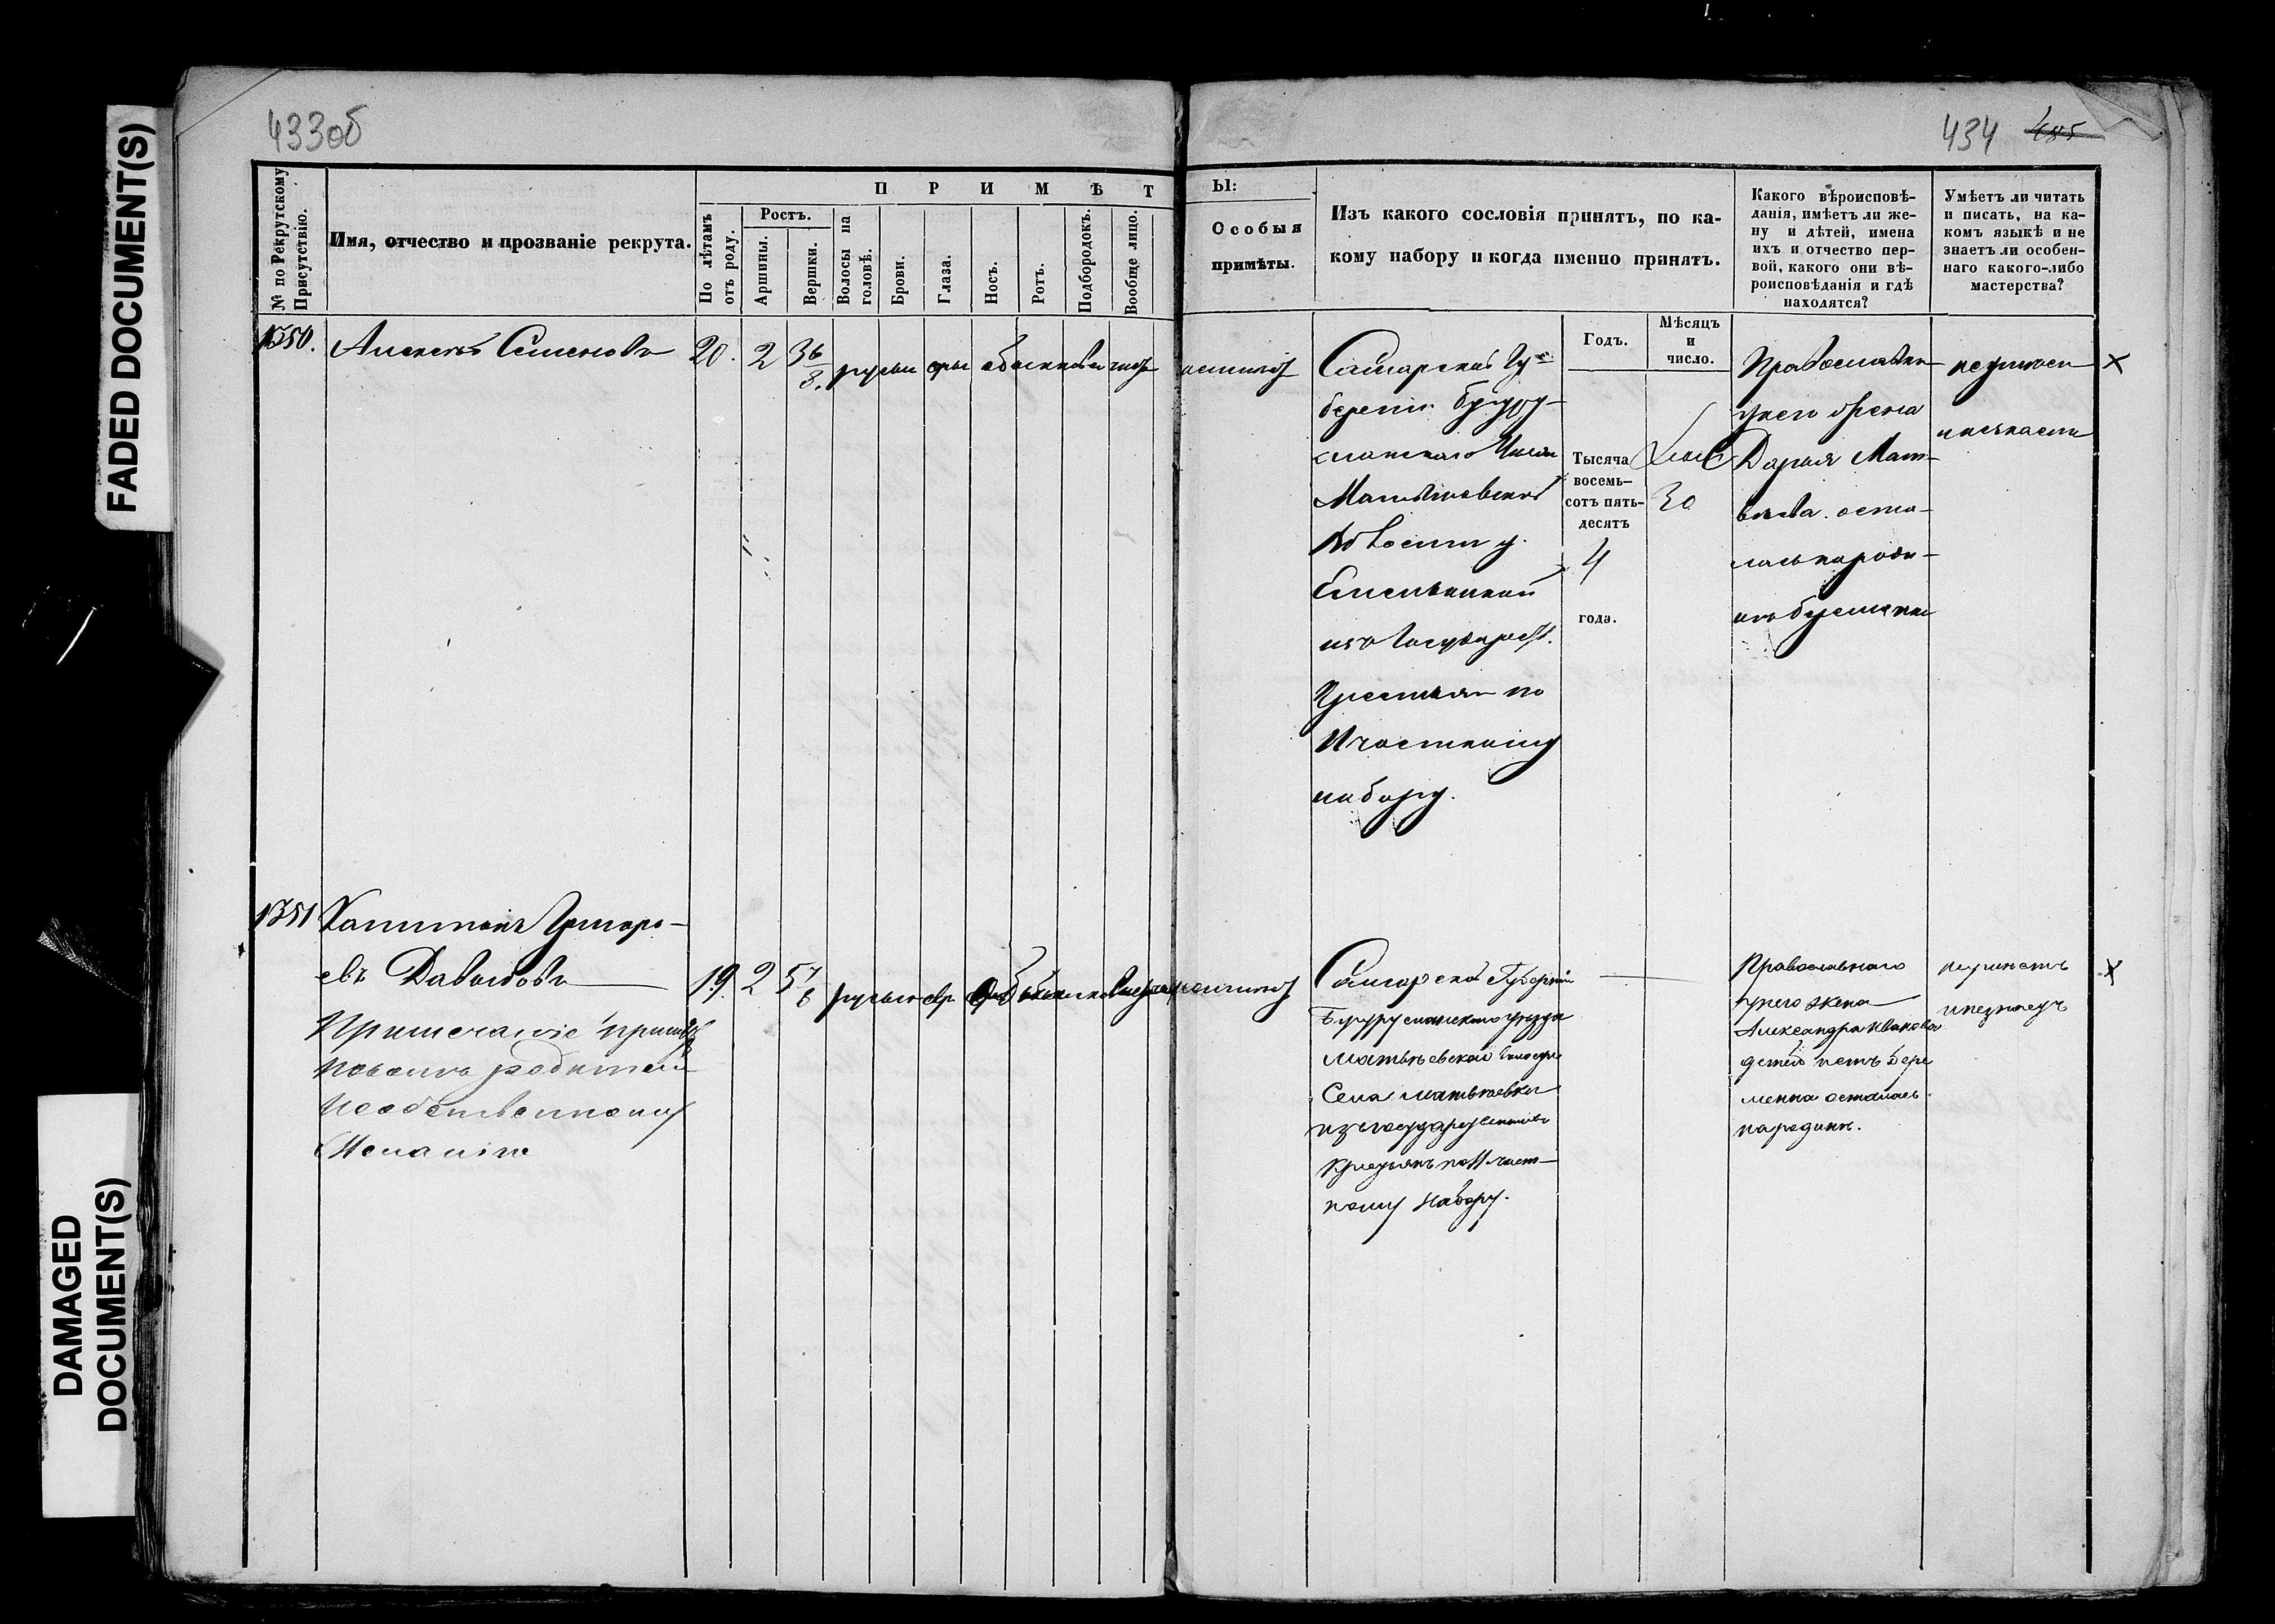 FADED DOCUMENT(S)
DAMAGED
DOCUMENT(S)
433об
434 485
№ по Рекрутскому
Присутствію.
Имя, отчество и прозваніе рекрута.
ПРИМѢТ
По лѣтамъ
отъ роду.
Ростъ.
Аршины.
Вершки.
Волосы на
головѣ.
Брови.
Глаза.
Носъ.
Ротъ.
Подбородокъ.
Вообще лицо.
Ы:
Особыя
примѣты.
Изъ какого сословія принятъ, по ка-
кому набору и когда именно принятъ.
Какого вѣроисповѣ-
данія, имѣетъ ли же-
ну и дѣтей, имена
ихъ и отчество пер-
вой, какого они вѣ-
роисповѣданія и гдѣ
находятся?
Умѣетъ ли читать
и писать, на ка-
комъ языкѣ и не
знаетъ ли особен-
наго какого-либо
мастерства?
1350.
Алексей Семеновъ
20. 2 3 6/8. русые серы обыкновен
Самарской Гу-
берніи Бугуру-
сланскаго
Матвѣевской
Волости
изъ Государст.
Крестьян по
11 частному
набору.
Годъ.
Тысяча
восемь-
сотъ пять-
десятъ
4
года.
Мѣсяцъ
и
число.
30
Православн
у него жена
Дарья Мат-
вѣева. оста-
лась народи-
нѣ беременна
х
1351
Капитонъ Григорь-
евъ Давыдовъ
19. 2 5 7/8 русые
Примечаніе принятъ
родителей
По собственному
Желанію
Самарской Губерніи
Бугурусланскаго уезда
Матвѣевской волости
Села Матвѣевки
изъ государственныхъ
Крестьянъ по 11 част-
ному набору.
Православнаго
у него жена
Александра Иванова
детей нетъ бере
менна осталась
на родинѣ.
неумеетъ
и незнаетъ
х